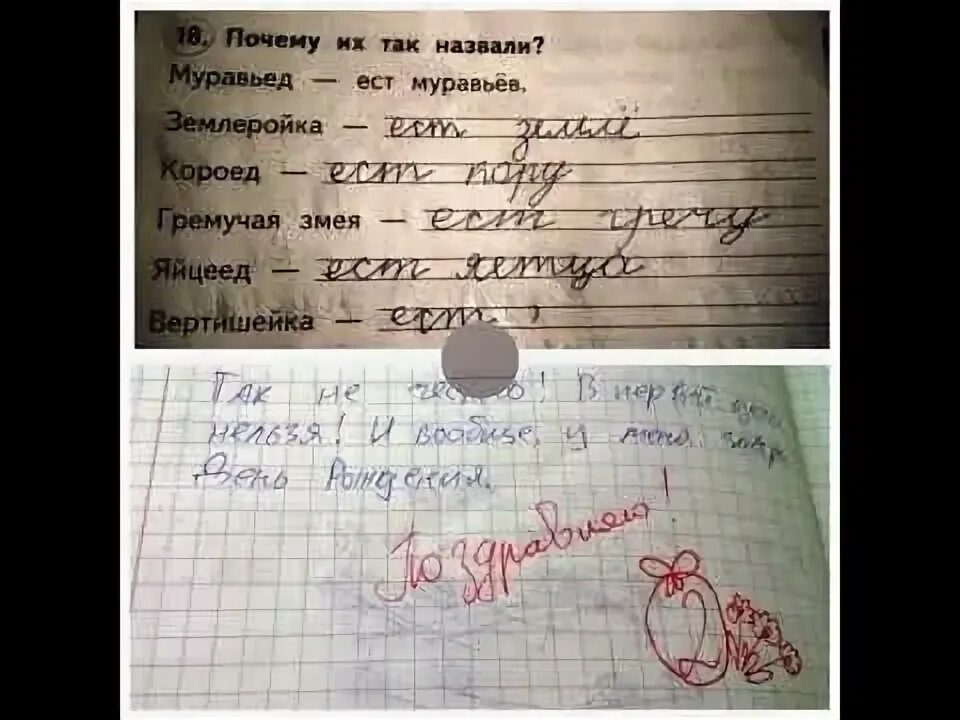 18. Почему их так назвали?
Муравьед — ест муравьёв.
Землеройка — ест землё
Короед — ест пору
Гремучая змея — ест гречу
Яйцеед — ест яетца
Вертишейка — ест
Так не честно! В
нельзя! И вообще, у меня
День Рождения.
Поздравляю!
2